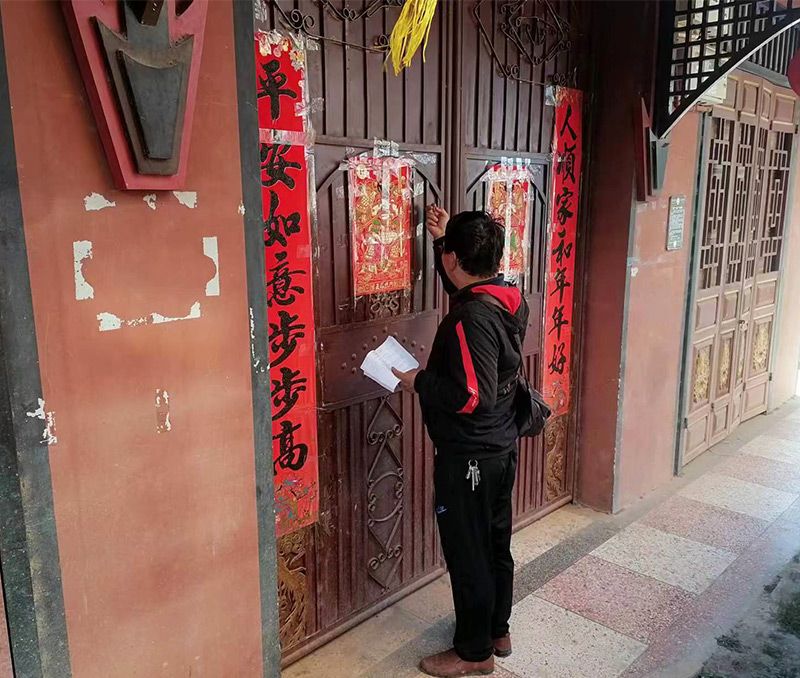 人順家和年年好
平安如意步步高